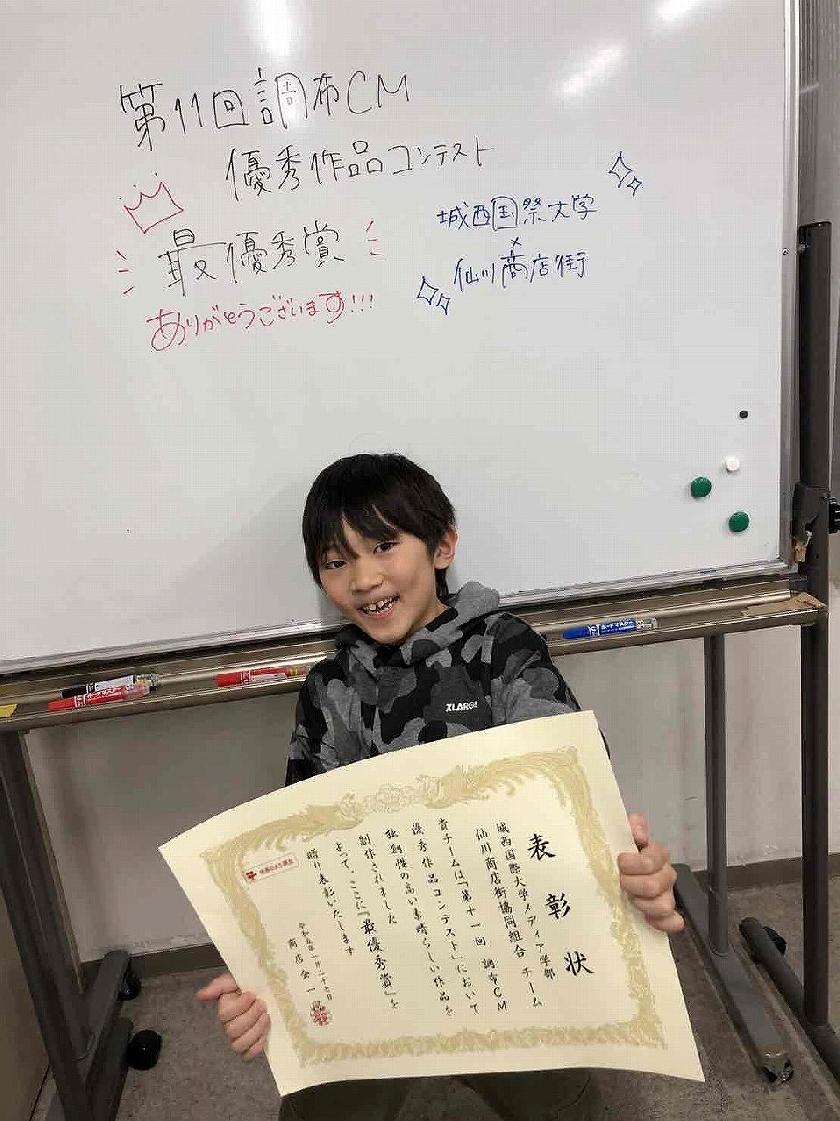 第11回調布CM
優秀作品コンテスト
最優秀賞
ありがとうございます!!!
城西国際大学
×
仙川商店街
XLARGE
表彰状
城西国際大学メディア学部
仙川商店街協同組合 チーム
貴チームは「第十一回 調布CM
優秀作品コンテスト」において
独創性の高い素晴らしい作品を
創作されました
よって、ここに「最優秀賞」を
贈り表彰いたします
令和五年一月二十七日
商店会一同